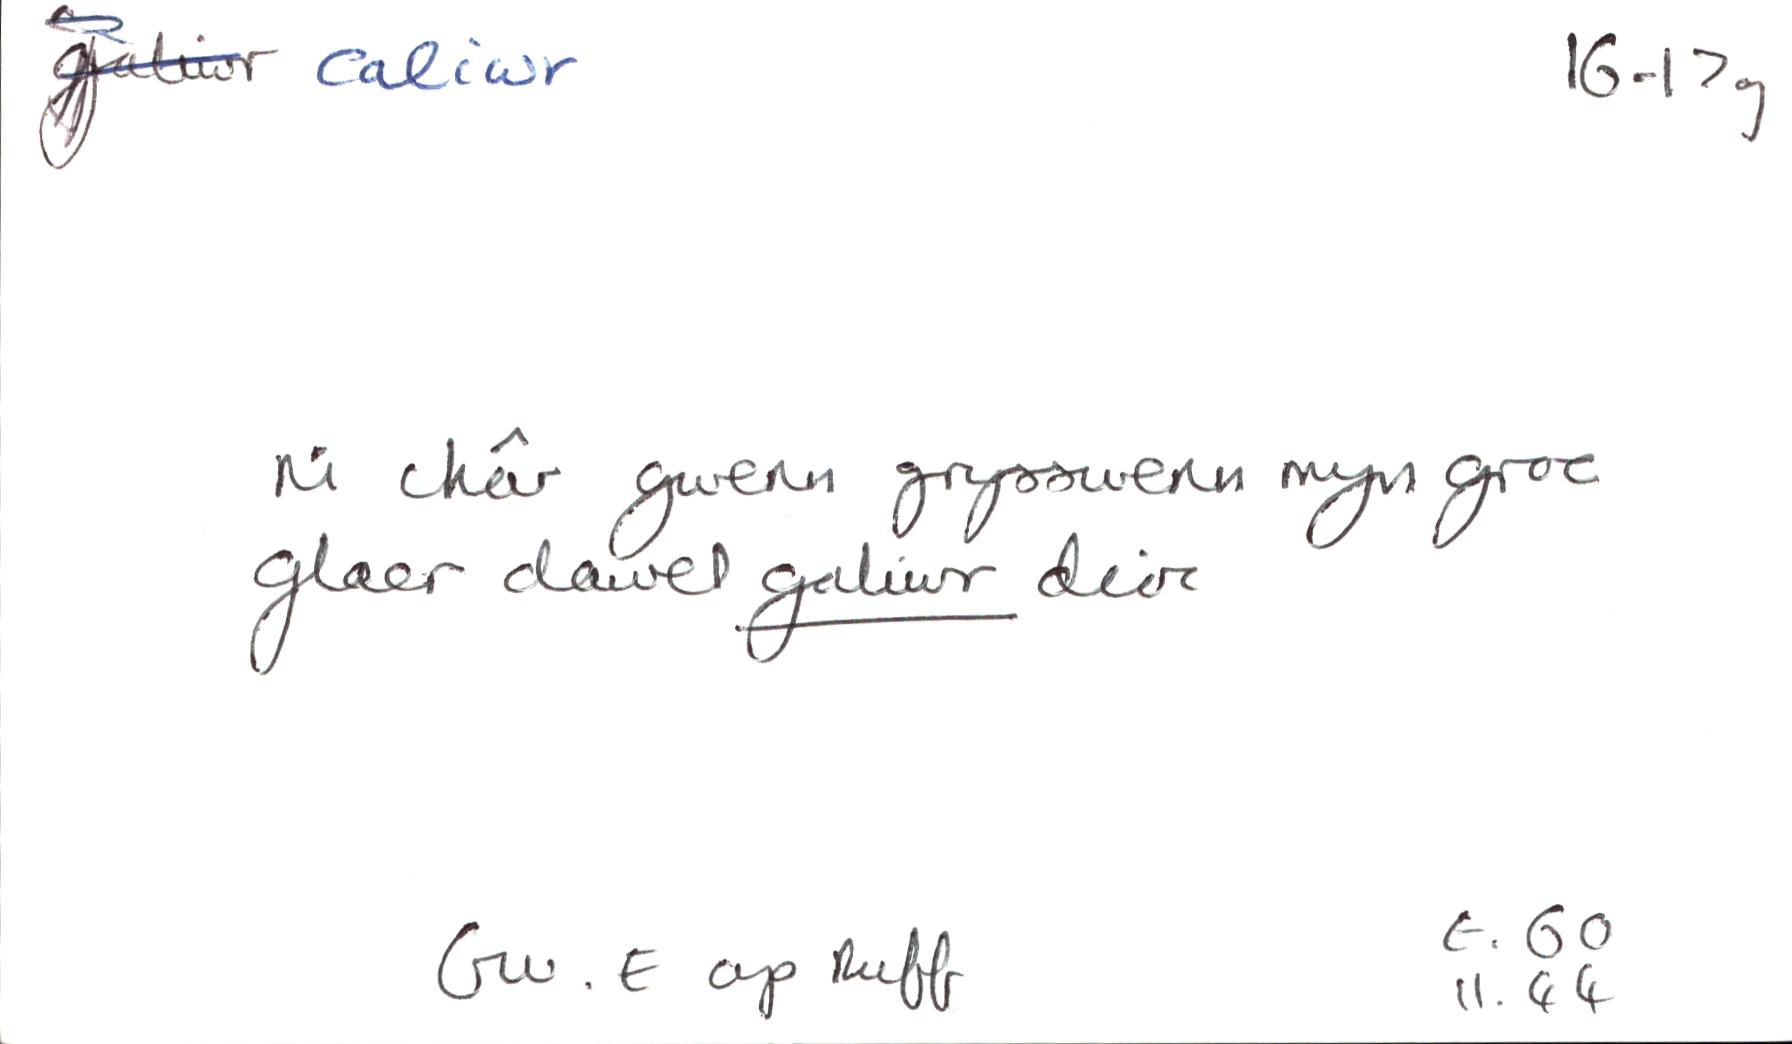 galiwr caliwr 16-17g
ni châr gwenn grysswenn myn groc
glaer dawel galiwr dioc
Gw. E ap Ruff
E. 60
11. 44